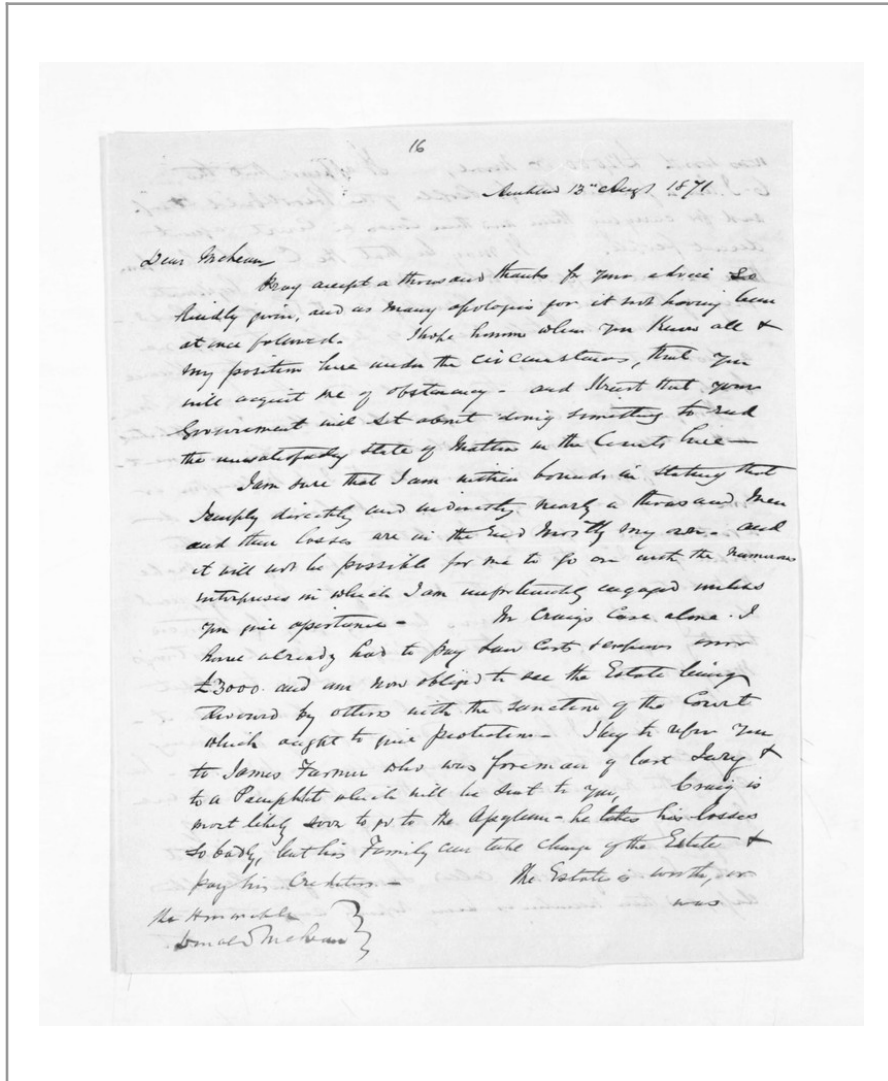 16
Auckland 13th Augt 1871
Dear McLean
Pray accept a thousand thanks for your advice so
kindly given, and as many apologies for it not having been
at once followed. I hope however when you know all &
my position here under the circumstances, that you
will acquit me of obstinacy - and I trust that your
Government will set about doing something to end
the unsatisfactory state of Matters in the Courts here -
I am sure that I am within bounds in stating that
I employ directly and indirectly nearly a thousand Men
and their losses are in the end mostly my own - and
it will not be possible for me to go on with the numerous
enterprises in which I am unfortunately engaged unless
you give assistance - In Craigs Case alone I
have already had to pay Law Costs & expenses over
£3000 and am now obliged to see the Estate being
devoured by others with the sanction of the Court
which ought to give protection - I beg to refer you
to James Farmer who was foreman of last Jury &
to a Pamphlet which will be sent to you, Craig is
most likely soon to go to the Asylum - he takes his losses
so badly, but his Family can take charge of the Estate &
pay his Creditors - The Estate is worth, or
was
The Honorable
Donald McLean